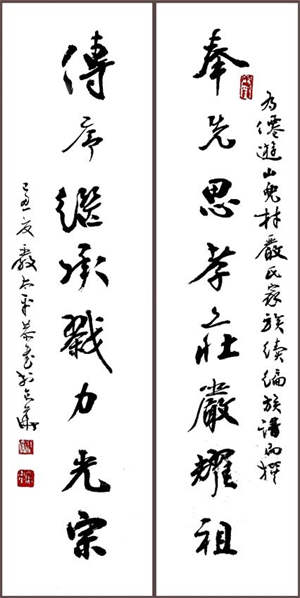 為僊遊山兜村嚴氏家族續編族譜而撰
奉先思孝莊嚴耀祖
傳序繼承戮力光宗
己丑夏嚴太平恭書於京華